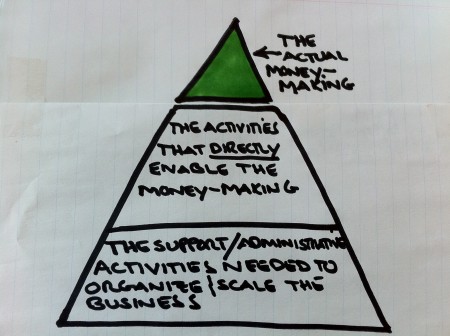 THE
ACTUAL
MONEY-
MAKING
THE ACTIVITIES
THAT DIRECTLY
ENABLE THE
MONEY-MAKING
THE SUPPORT/ADMINISTRATIVE
ACTIVITIES NEEDED TO
ORGANIZE & SCALE THE
BUSINESS